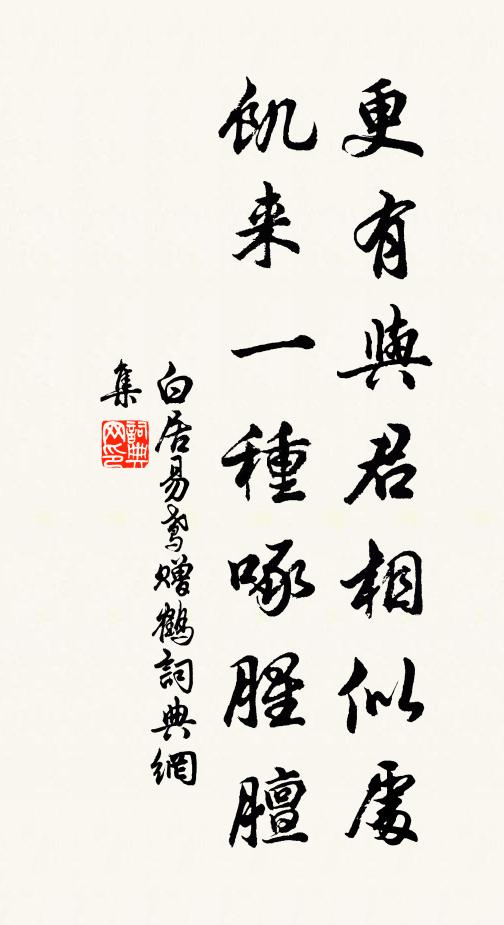 更有與君相似處
飢来一種啄腥膻
白居易鸢贈鶴詞典網
集
詞典網印